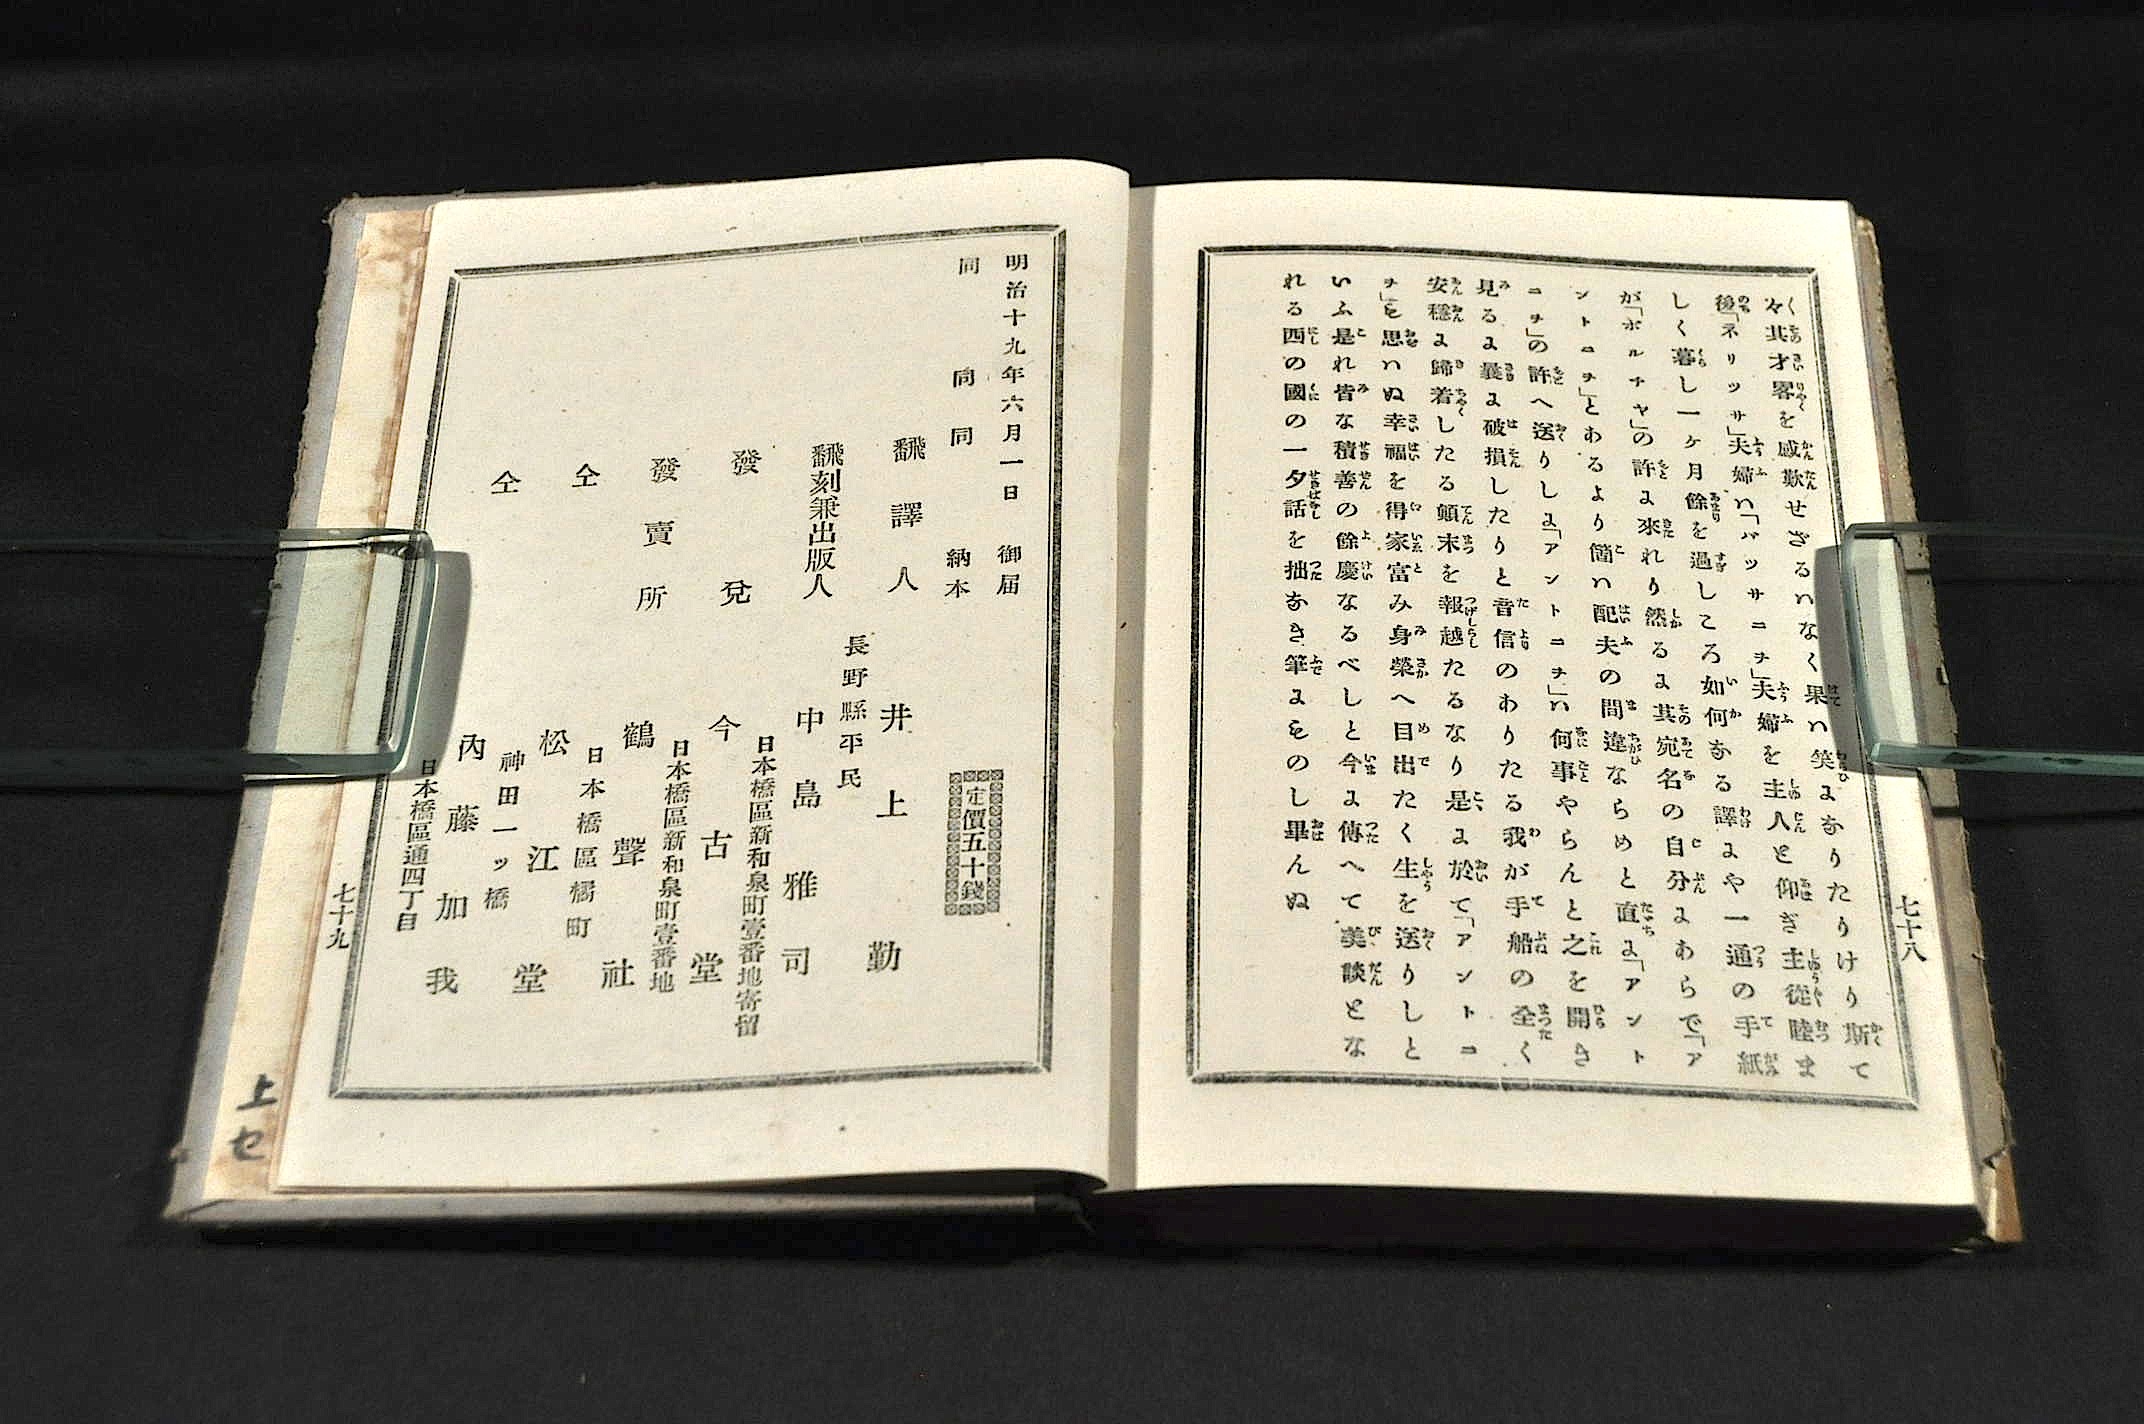 々其才畧を感歎せざるハなく果ハ笑ま􏿿りたりけり斯て
後「ネリッサ」夫婦ハ「バッサニヲ」夫婦を主人と仰ぎ主從睦ま
しく暮し一ヶ月餘を過しころ如何なる譯よや一通の手紙
が「ポルチヤ」の許よ來れり然るよ其宛名の自分よあらで「ア
ントニヲ」とあるより簡ハ配夫の間違ならめと直よ「アント
ニヲ」の許へ送りしよ「アントニヲ」ハ何事やらんと之を開き
見るよ曩よ破損したりと音信のありたる我が手船の全く
安穩よ歸着したる顛末を報越たるなり是よ於て「アントニ
ヲ」も思ハぬ幸福を得家富み身榮へ目出たく生を送りしと
いふ是れ皆な積善の餘慶なるべしと今よ傳へて美談とな
れる西の國の一夕話を拙なき筆よものし畢んぬ
七十八
明治十九年六月一日　御届
同　同　同　納本
定價五十錢
飜譯人　井上勤
長野縣平民
飜刻兼出版人　中島雅司
日本橋區新和泉町壹番地寄留
發兌　今古堂
日本橋區新和泉町壹番地
發賣所　鶴聲社
日本橋區橘町
仝　松江堂
神田一ッ橋
仝　內藤加我
日本橋區通四丁目
七十九
上
セ